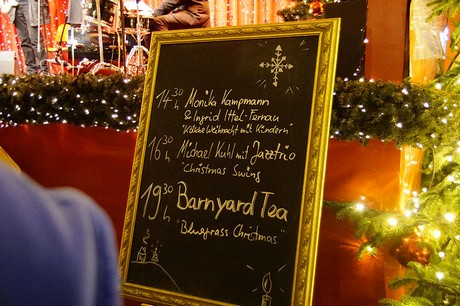 14 30 h Monika Kampmann
& Ingrid Ittel-Fernau
"Kölsche Weihnacht mit Kindern"
16 30 h Michael Kuhl mit Jazztrio
"Christmas Swing"
19 30 h Barnyard Tea
"Bluegrass Christmas"